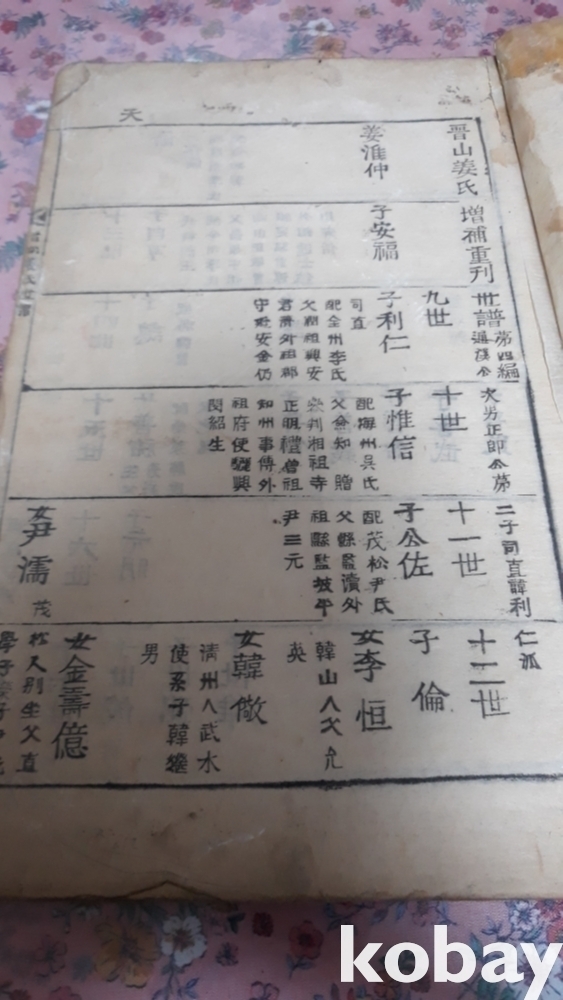 天
晋山姜氏 增補重刊 世譜 第四編
通溪公
次男正郎公第
二子司直諱利
仁派
姜淮仲
子安福
九世
子利仁
司直
配全州李氏
守 安金仍
十世
子惟信
配海州吳氏
父僉知 贈
參判湘祖寺
正明禮曾祖
知州事傳外
祖府使驪興
閔紹生
十一世
子公佐
配茂松尹氏
父縣監瀆外
祖縣監坡平
尹三元
女尹濡
茂
十二世
子倫
女李恒
韓山人父允
英
女韓儆
清州人武水
使系子韓
男
女金壽億
kobay